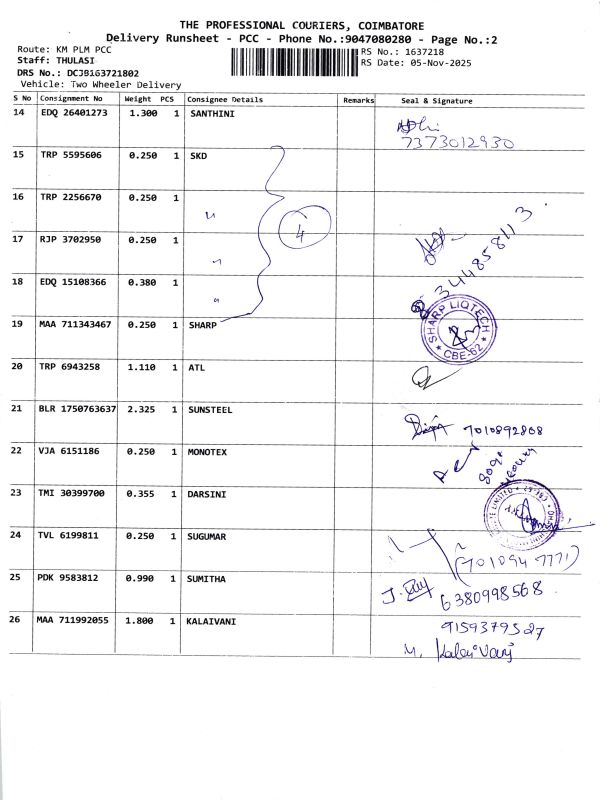 THE PROFESSIONAL COURIERS, COIMBATORE
Delivery Runsheet - PCC - Phone No.:9047080280 - Page No.:2
Route: KM PLM PCC
RS No.: 1637218
Staff: THULASI
RS Date: 05-Nov-2025
DRS No.: DCJB163721802
Vehicle: Two Wheeler Delivery
S No Consignment No Weight PCS Consignee Details Remarks Seal & Signature
14 EDQ 26401273 1.300 1 SANTHINI
7373012930
15 TRP 5595606 0.250 1 SKD
16 TRP 2256670 0.250 1 "
4
17 RJP 3702950 0.250 1 "
18 EDQ 15108366 0.380 1 "
19 MAA 711343467 0.250 1 SHARP
SHARP LIQTECH
CBE-62
20 TRP 6943258 1.110 1 ATL
21 BLR 1750763637 2.325 1 SUNSTEEL
7010892808
22 VJA 6151186 0.250 1 MONOTEX
23 TMI 30399700 0.355 1 DARSINI
24 TVL 6199811 0.250 1 SUGUMAR
(7010947771)
25 PDK 9583812 0.990 1 SUMITHA
6380998568
26 MAA 711992055 1.800 1 KALAIVANI
9159379527
M. Kalaivani